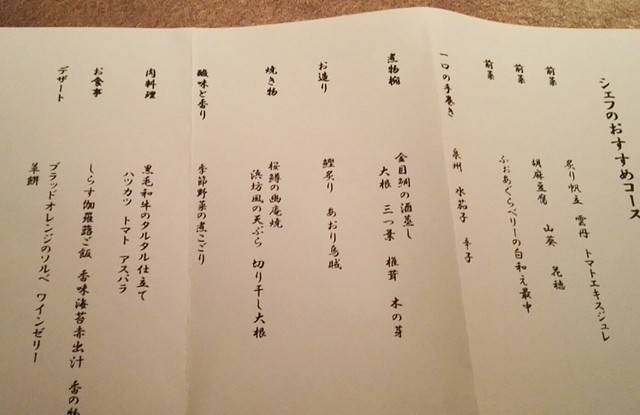 シェフのおすすめコース
前菜 炙り帆立 雲丹 トマトエキスジュレ
前菜 胡麻豆腐 山葵 花穂
前菜 ふぉあぐらべリーの白和え最中
一口の手巻き 泉州 水茄子 辛子
煮物椀 金目鯛の酒蒸し
大根 三つ葉 椎茸 木の芽
お造り 鰹炙り あおり烏賊
焼き物 桜鱒の幽庵焼
浜坊風の天ぷら 切り干し大根
酸味と香り 季節野菜の煮こごり
肉料理 黒毛和牛のタルタル仕立て
ハツカツ トマト アスパラ
お食事 しらす伽羅蕗ご飯 香味海苔赤出汁 香の物
デザート ブラッドオレンジのソルベ ワインゼリー
草餅